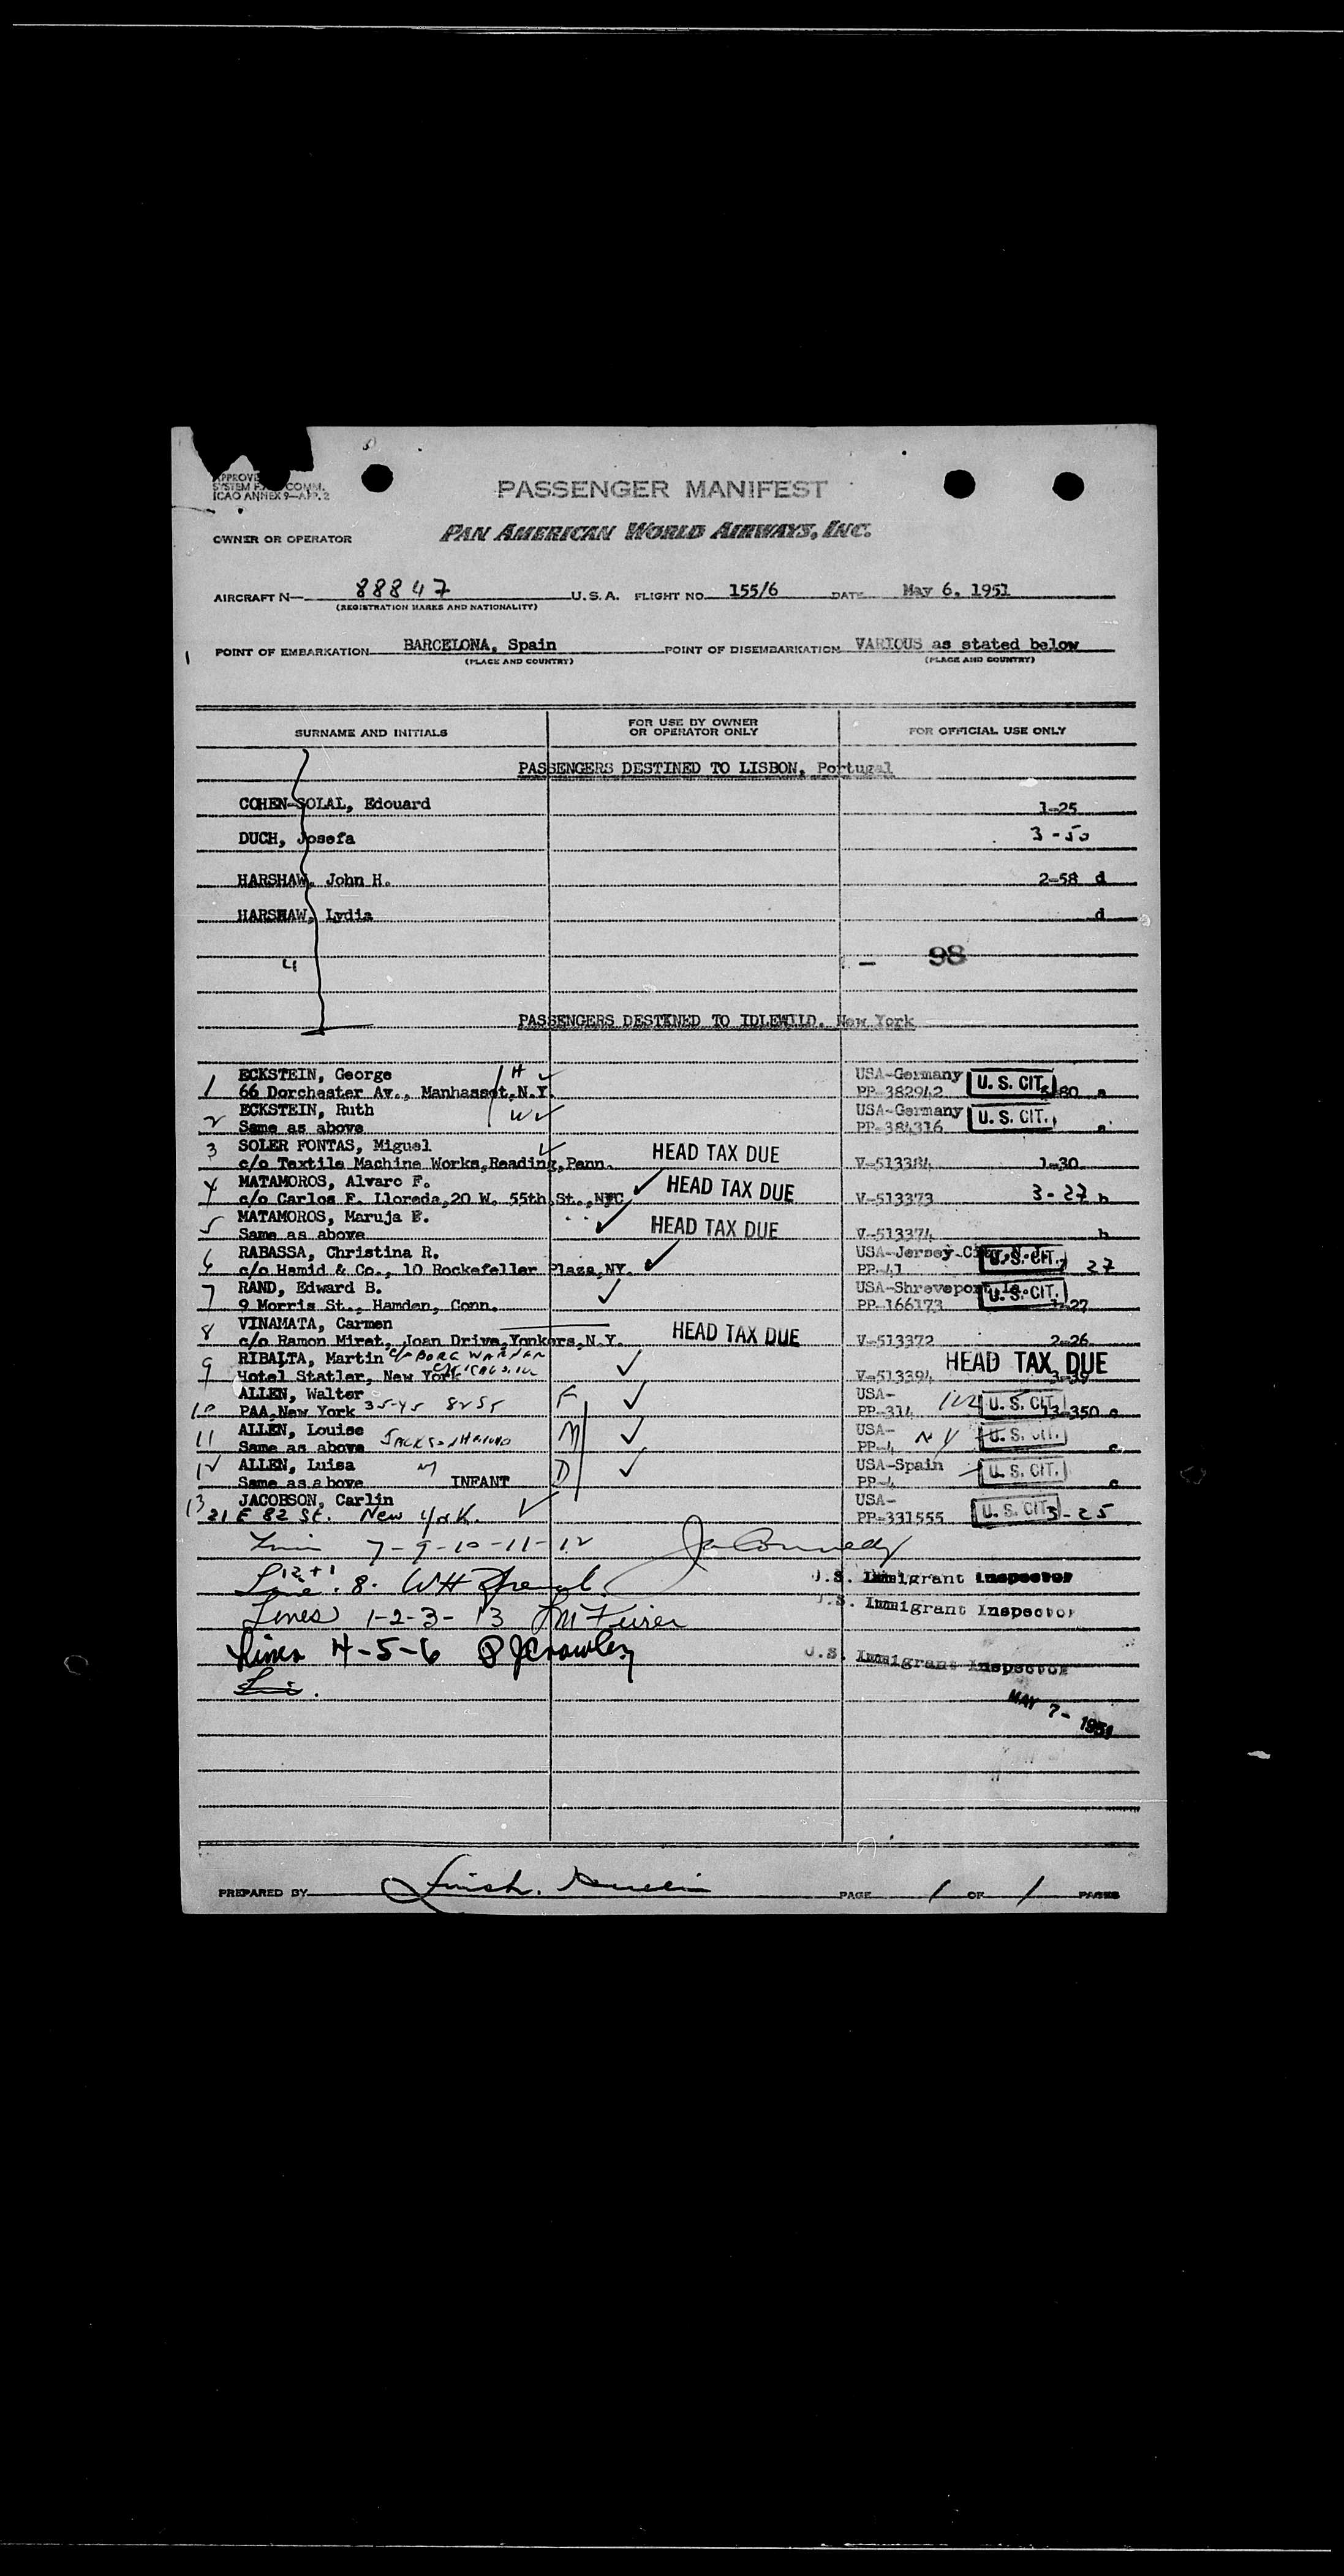 SYSTEM
ICAO ANNEX 9—APP. 2
PASSENGER MANIFEST
OWNER OR OPERATOR PAN AMERICAN WORLD AIRWAYS, INC.
AIRCRAFT N— 88847 U.S.A. FLIGHT NO. 155/6 DATE May 6, 1951
(REGISTRATION MARKS AND NATIONALITY)
POINT OF EMBARKATION BARCELONA, Spain POINT OF DISEMBARKATION VARIOUS as stated below
(PLACE AND COUNTRY) (PLACE AND COUNTRY)
SURNAME AND INITIALS FOR USE BY OWNER OR OPERATOR ONLY FOR OFFICIAL USE ONLY
PASSENGERS DESTINED TO LISBON, Portugal
COHEN-SOLAL, Edouard 1-25
DUCH, Josefa 3-50
HARSHAW, John H. 2-58 d
HARSHAW, Lydia d
4 - 98
PASSENGERS DESTINED TO IDLEWILD, New York
1 ECKSTEIN, George H USA-Germany U. S. CIT.
66 Dorchester Av., Manhasset,N.Y. PP-382942 80 a
2 ECKSTEIN, Ruth W USA-Germany U. S. CIT.
Same as above PP-384316 a
3 SOLER FONTAS, Miguel HEAD TAX DUE
c/o Textile Machine Works,Reading,Penn. V-513384 1-30
4 MATAMOROS, Alvaro F. HEAD TAX DUE
c/o Carlos F. Lloreda,20 W. 55th St.,NYC V-513373 3-27 b
5 MATAMOROS, Maruja E. HEAD TAX DUE
Same as above V-513374 b
6 RABASSA, Christina R. USA-Jersey City,N.J. U. S. CIT.
c/o Hamid & Co., 10 Rockefeller Plaza,NY. PP-41 27
7 RAND, Edward B. USA-Shreveport,La. U. S. CIT.
9 Morris St., Hamden, Conn. PP-166173 1-27
8 VINAMATA, Carmen HEAD TAX DUE
c/o Ramon Miret, Joan Drive,Yonkers,N.Y. V-513372 2-26
9 RIBALTA, Martin c/o BORG WARNER HEAD TAX DUE
Hotel Statler, New York CHICAGO, ILL V-513394 3-39
10 ALLEN, Walter F USA- U. S. CIT.
PAA,New York 35-45 82 St PP-314 13-350 c
11 ALLEN, Louise M USA- NY U. S. CIT.
Same as above JACKSON HEIGHTS PP-4 c
12 ALLEN, Luisa D USA-Spain U. S. CIT.
Same as above INFANT PP-4 c
13 JACOBSON, Carlin USA- U. S. CIT.
21 E 82 St. New York. PP-331555 3-25
7-9-10-11-12
12+1 U.S. Immigrant Inspector
Line 8. U.S. Immigrant Inspector
Lines 1-2-3-13
Lines 4-5-6 P J Crowley U.S. Immigrant Inspector
MAY 7- 1951
PREPARED BY PAGE 1 OF 1 PAGES